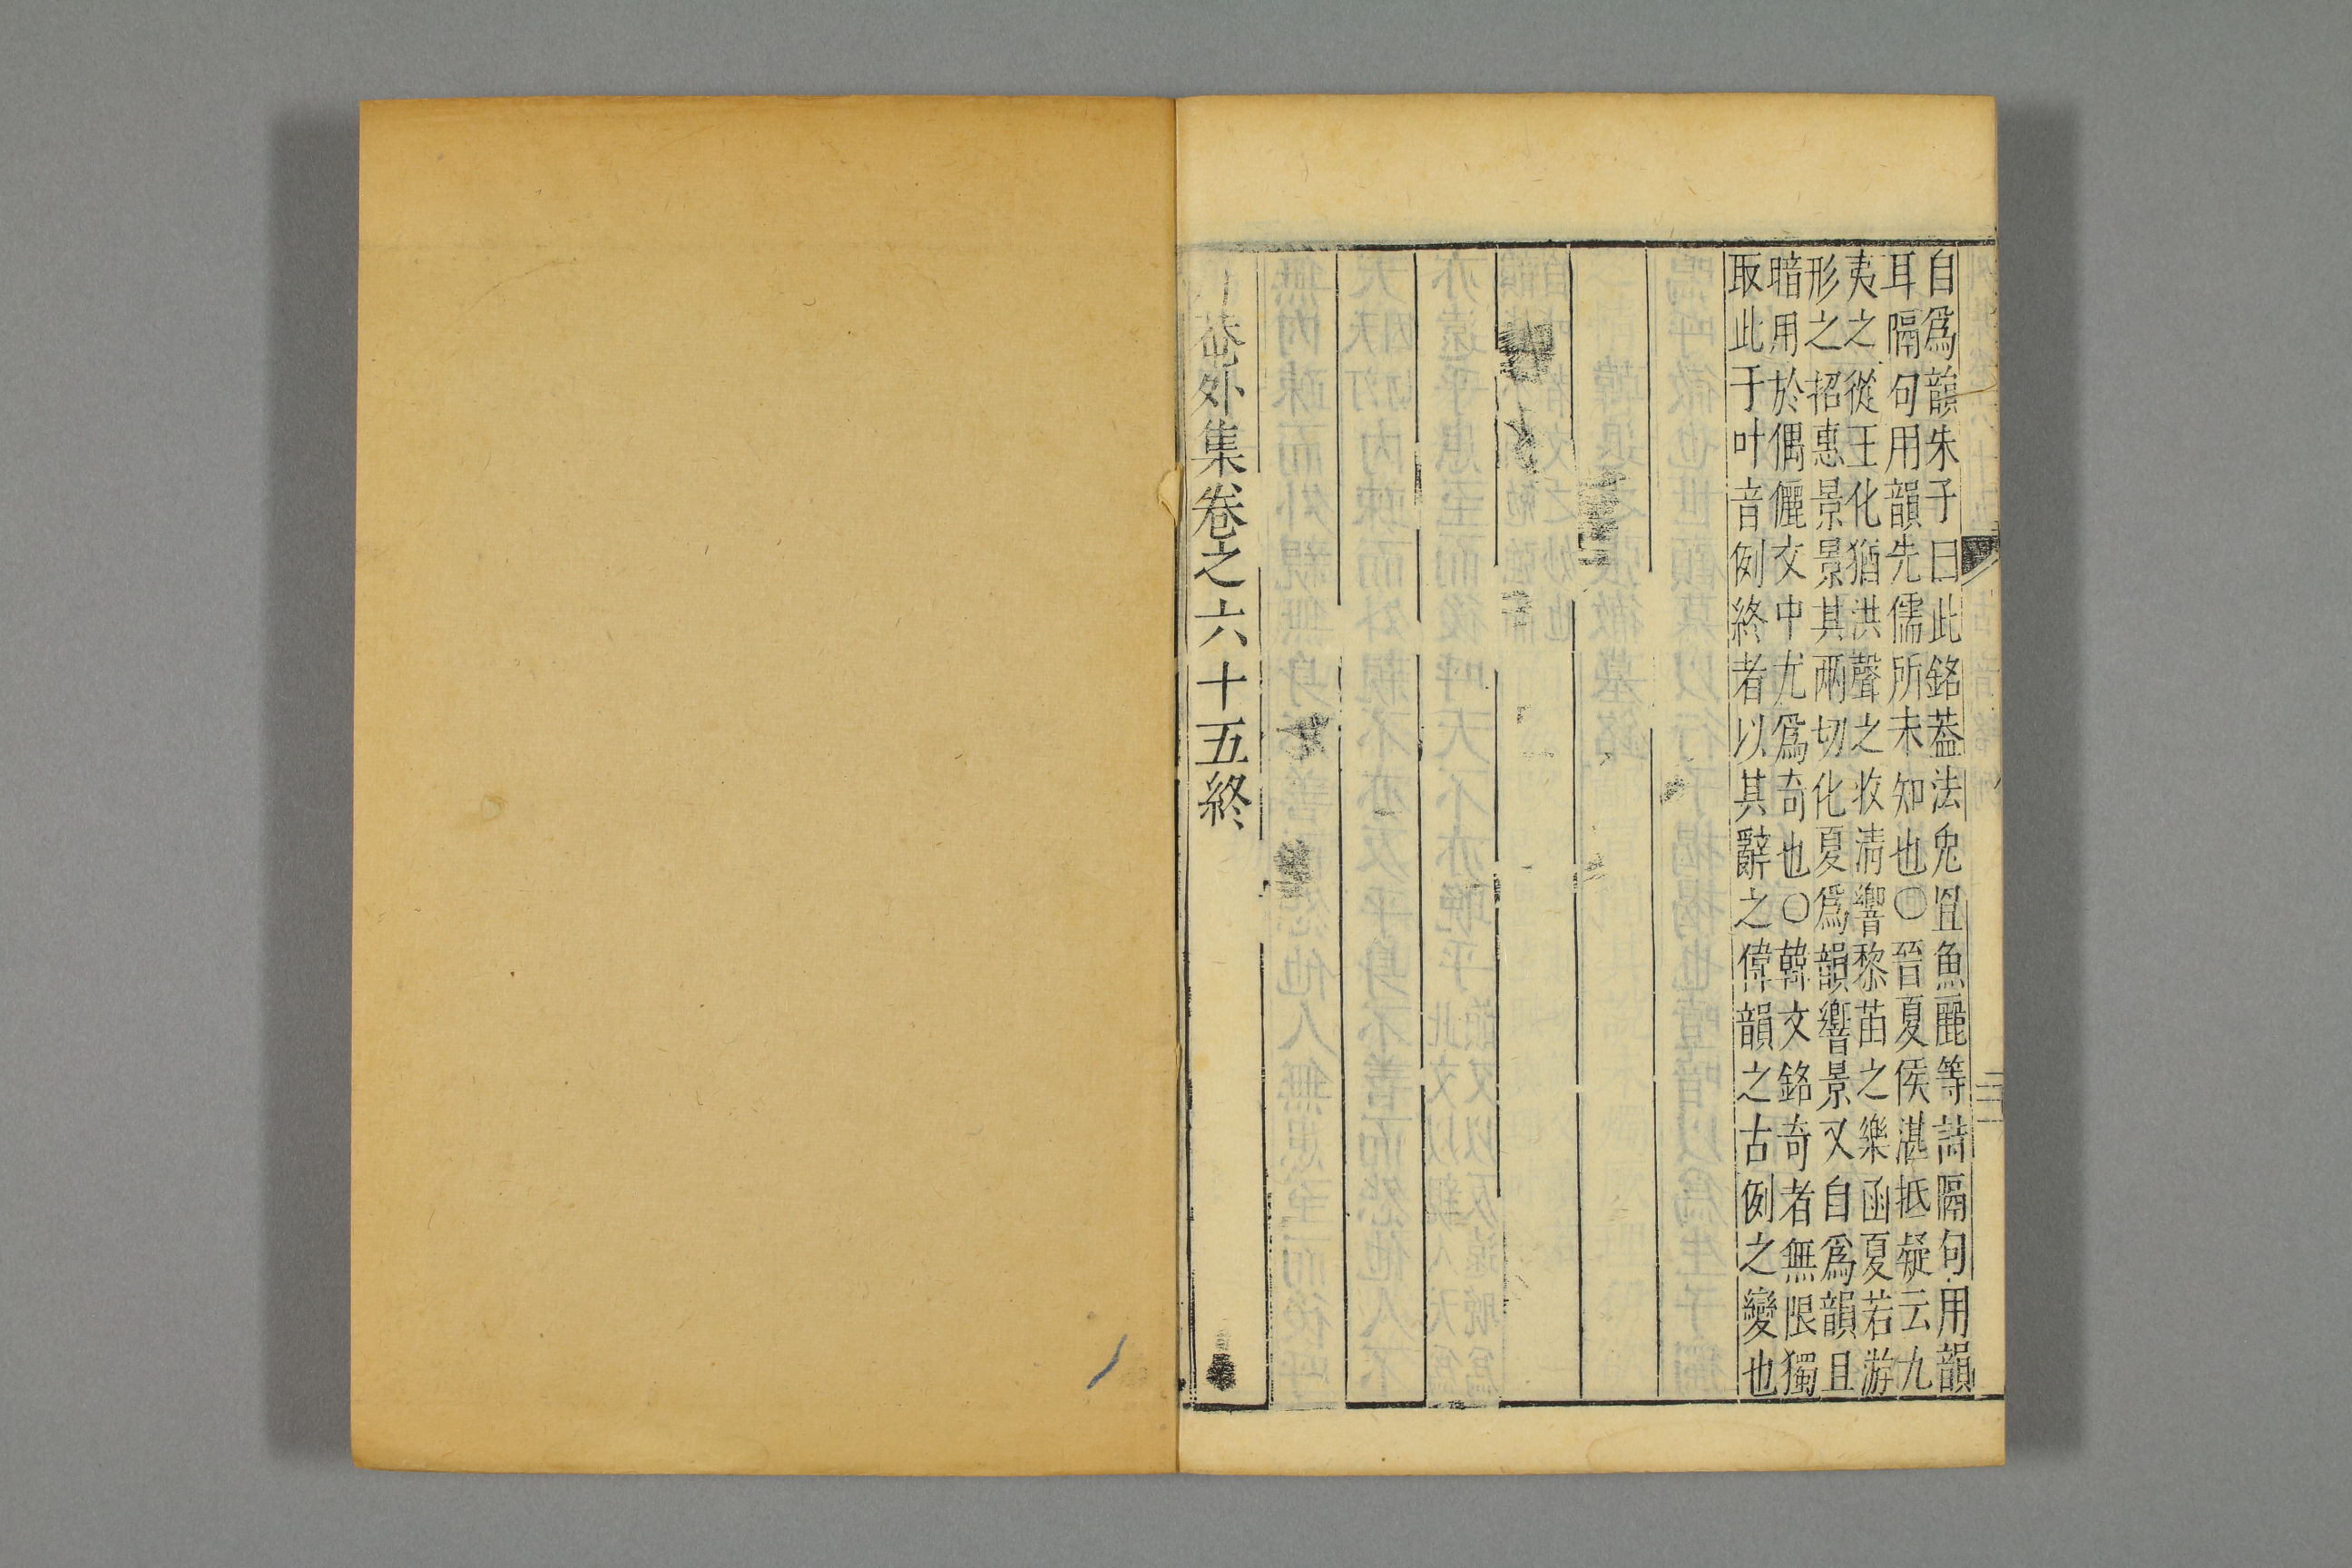 自爲韻朱子曰此銘葢法兔罝魚麗等詩隔句用韻
耳隔句用韻先儒所未知也○晉夏侯湛抵疑云九
夷之從王化猶洪聲之收清響黎苗之樂函夏若游
形之招惠景景其兩切化夏爲韻響景又自爲韻且
暗用於偶儷文中尤爲奇也○韓文銘奇者無限獨
取此于叶音例終者以其辭之偉韻之古例之變也
菴外集卷之六十五終